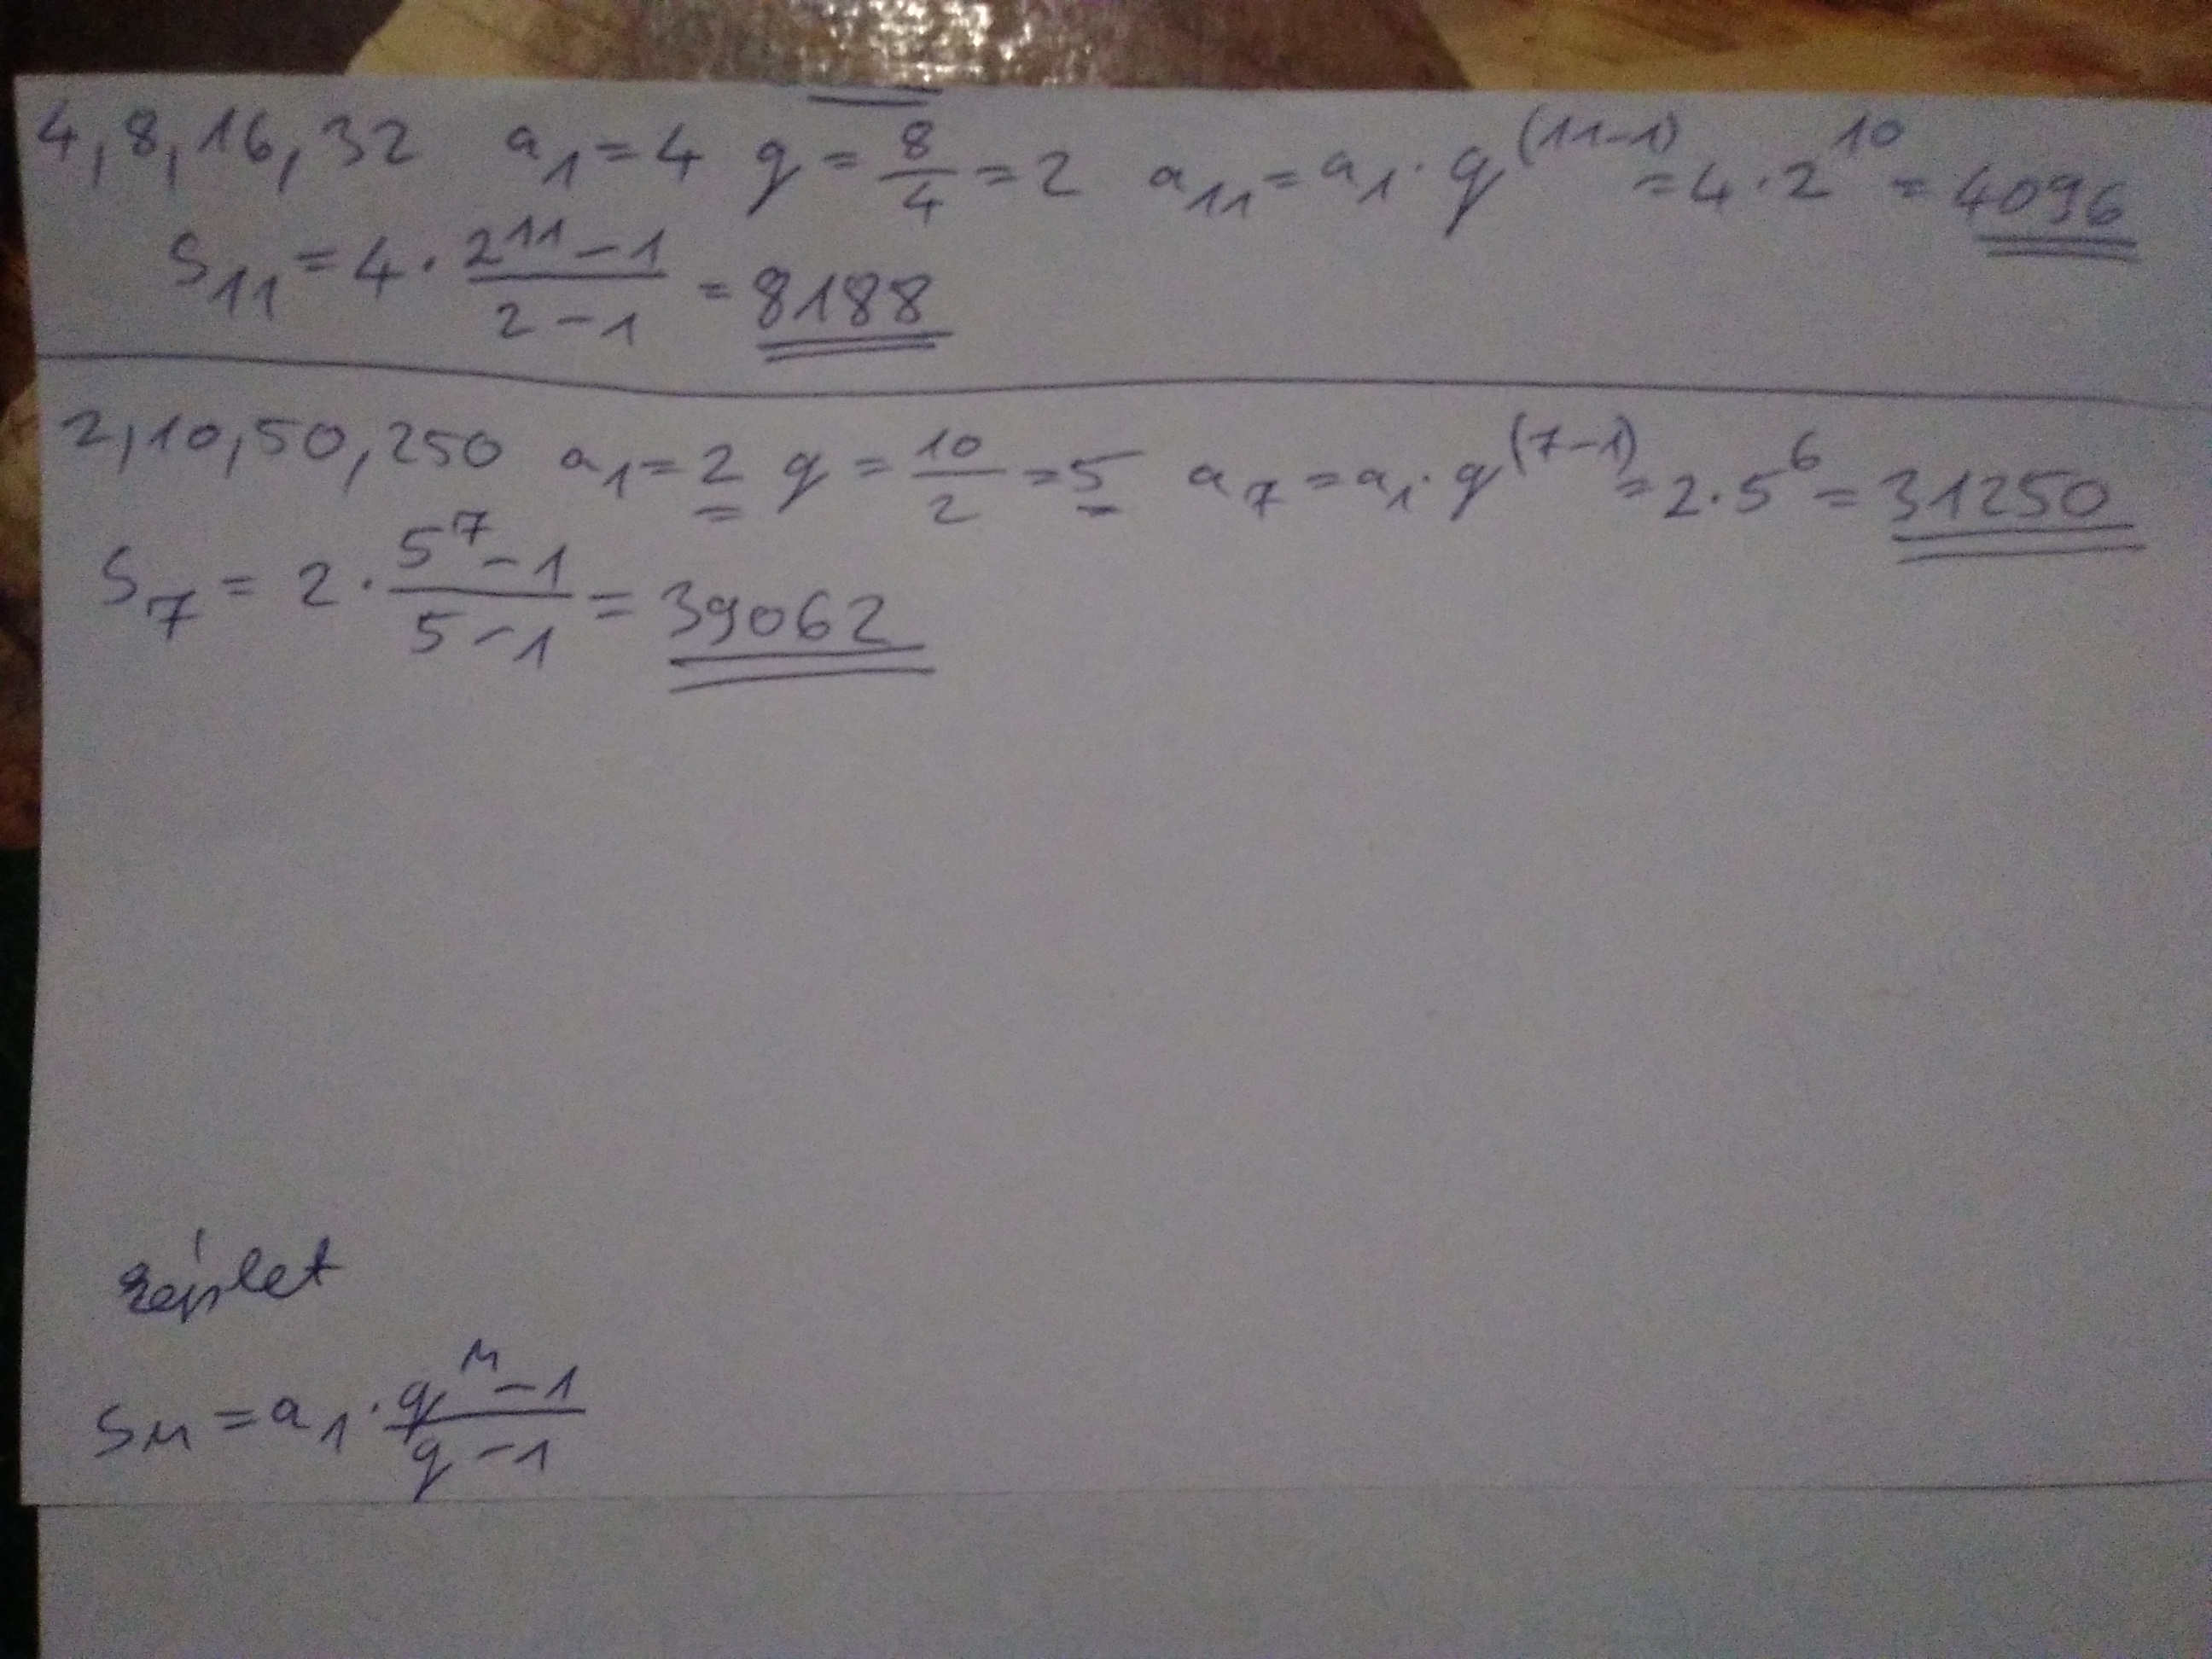 4, 8, 16, 32 a₁ = 4 q = 8/4 = 2 a₁₁ = a₁ · q^(11-1) = 4 · 2^10 = 4096
S₁₁ = 4 · (2^11 - 1)/(2 - 1) = 8188
2, 10, 50, 250 a₁ = 2 q = 10/2 = 5 a₇ = a₁ · q^(7-1) = 2 · 5^6 = 31250
S₇ = 2 · (5^7 - 1)/(5 - 1) = 39062
képlet
Sn = a₁ · (q^n - 1)/(q - 1)